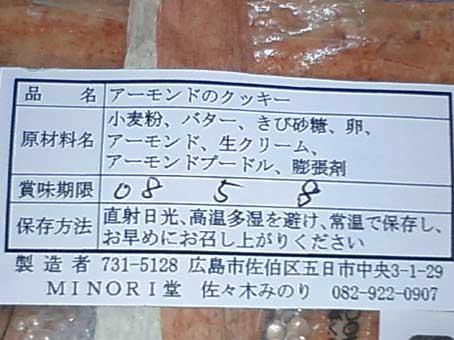 品 名 アーモンドのクッキー
原材料名 小麦粉、バター、きび砂糖、卵、
アーモンド、生クリーム、
アーモンドプードル、膨張剤
賞味期限 08 5 8
保存方法 直射日光、高温多湿を避け、常温で保存し、
お早めにお召し上がりください
製造者 731-5128 広島市佐伯区五日市中央3-1-29
MINORI堂 佐々木みのり 082-922-0907